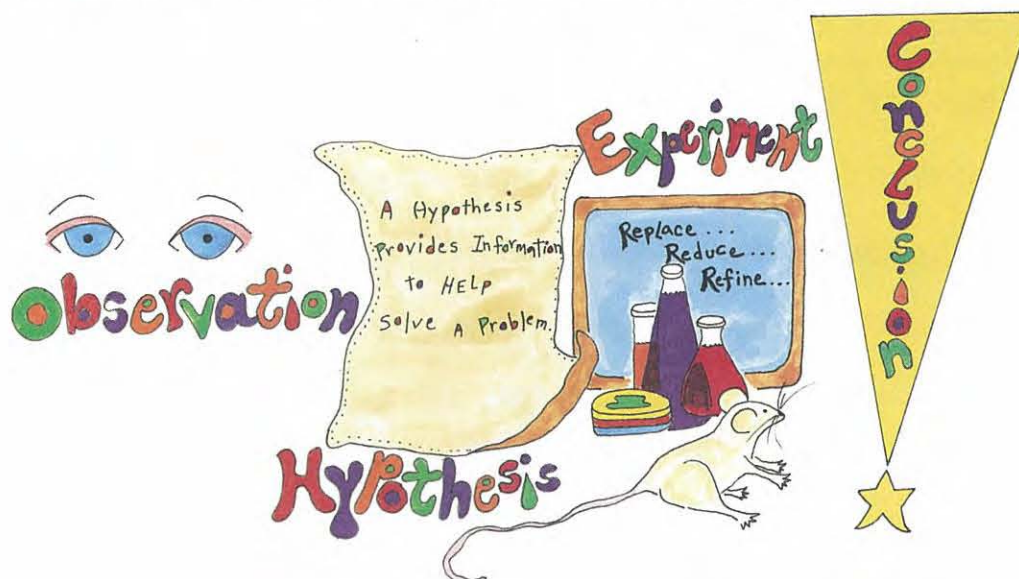 Observation
A Hypothesis
Provides Information
to HELP
Solve A Problem.
Hypothesis
Experiment
Replace...
Reduce...
Refine...
Conclusion